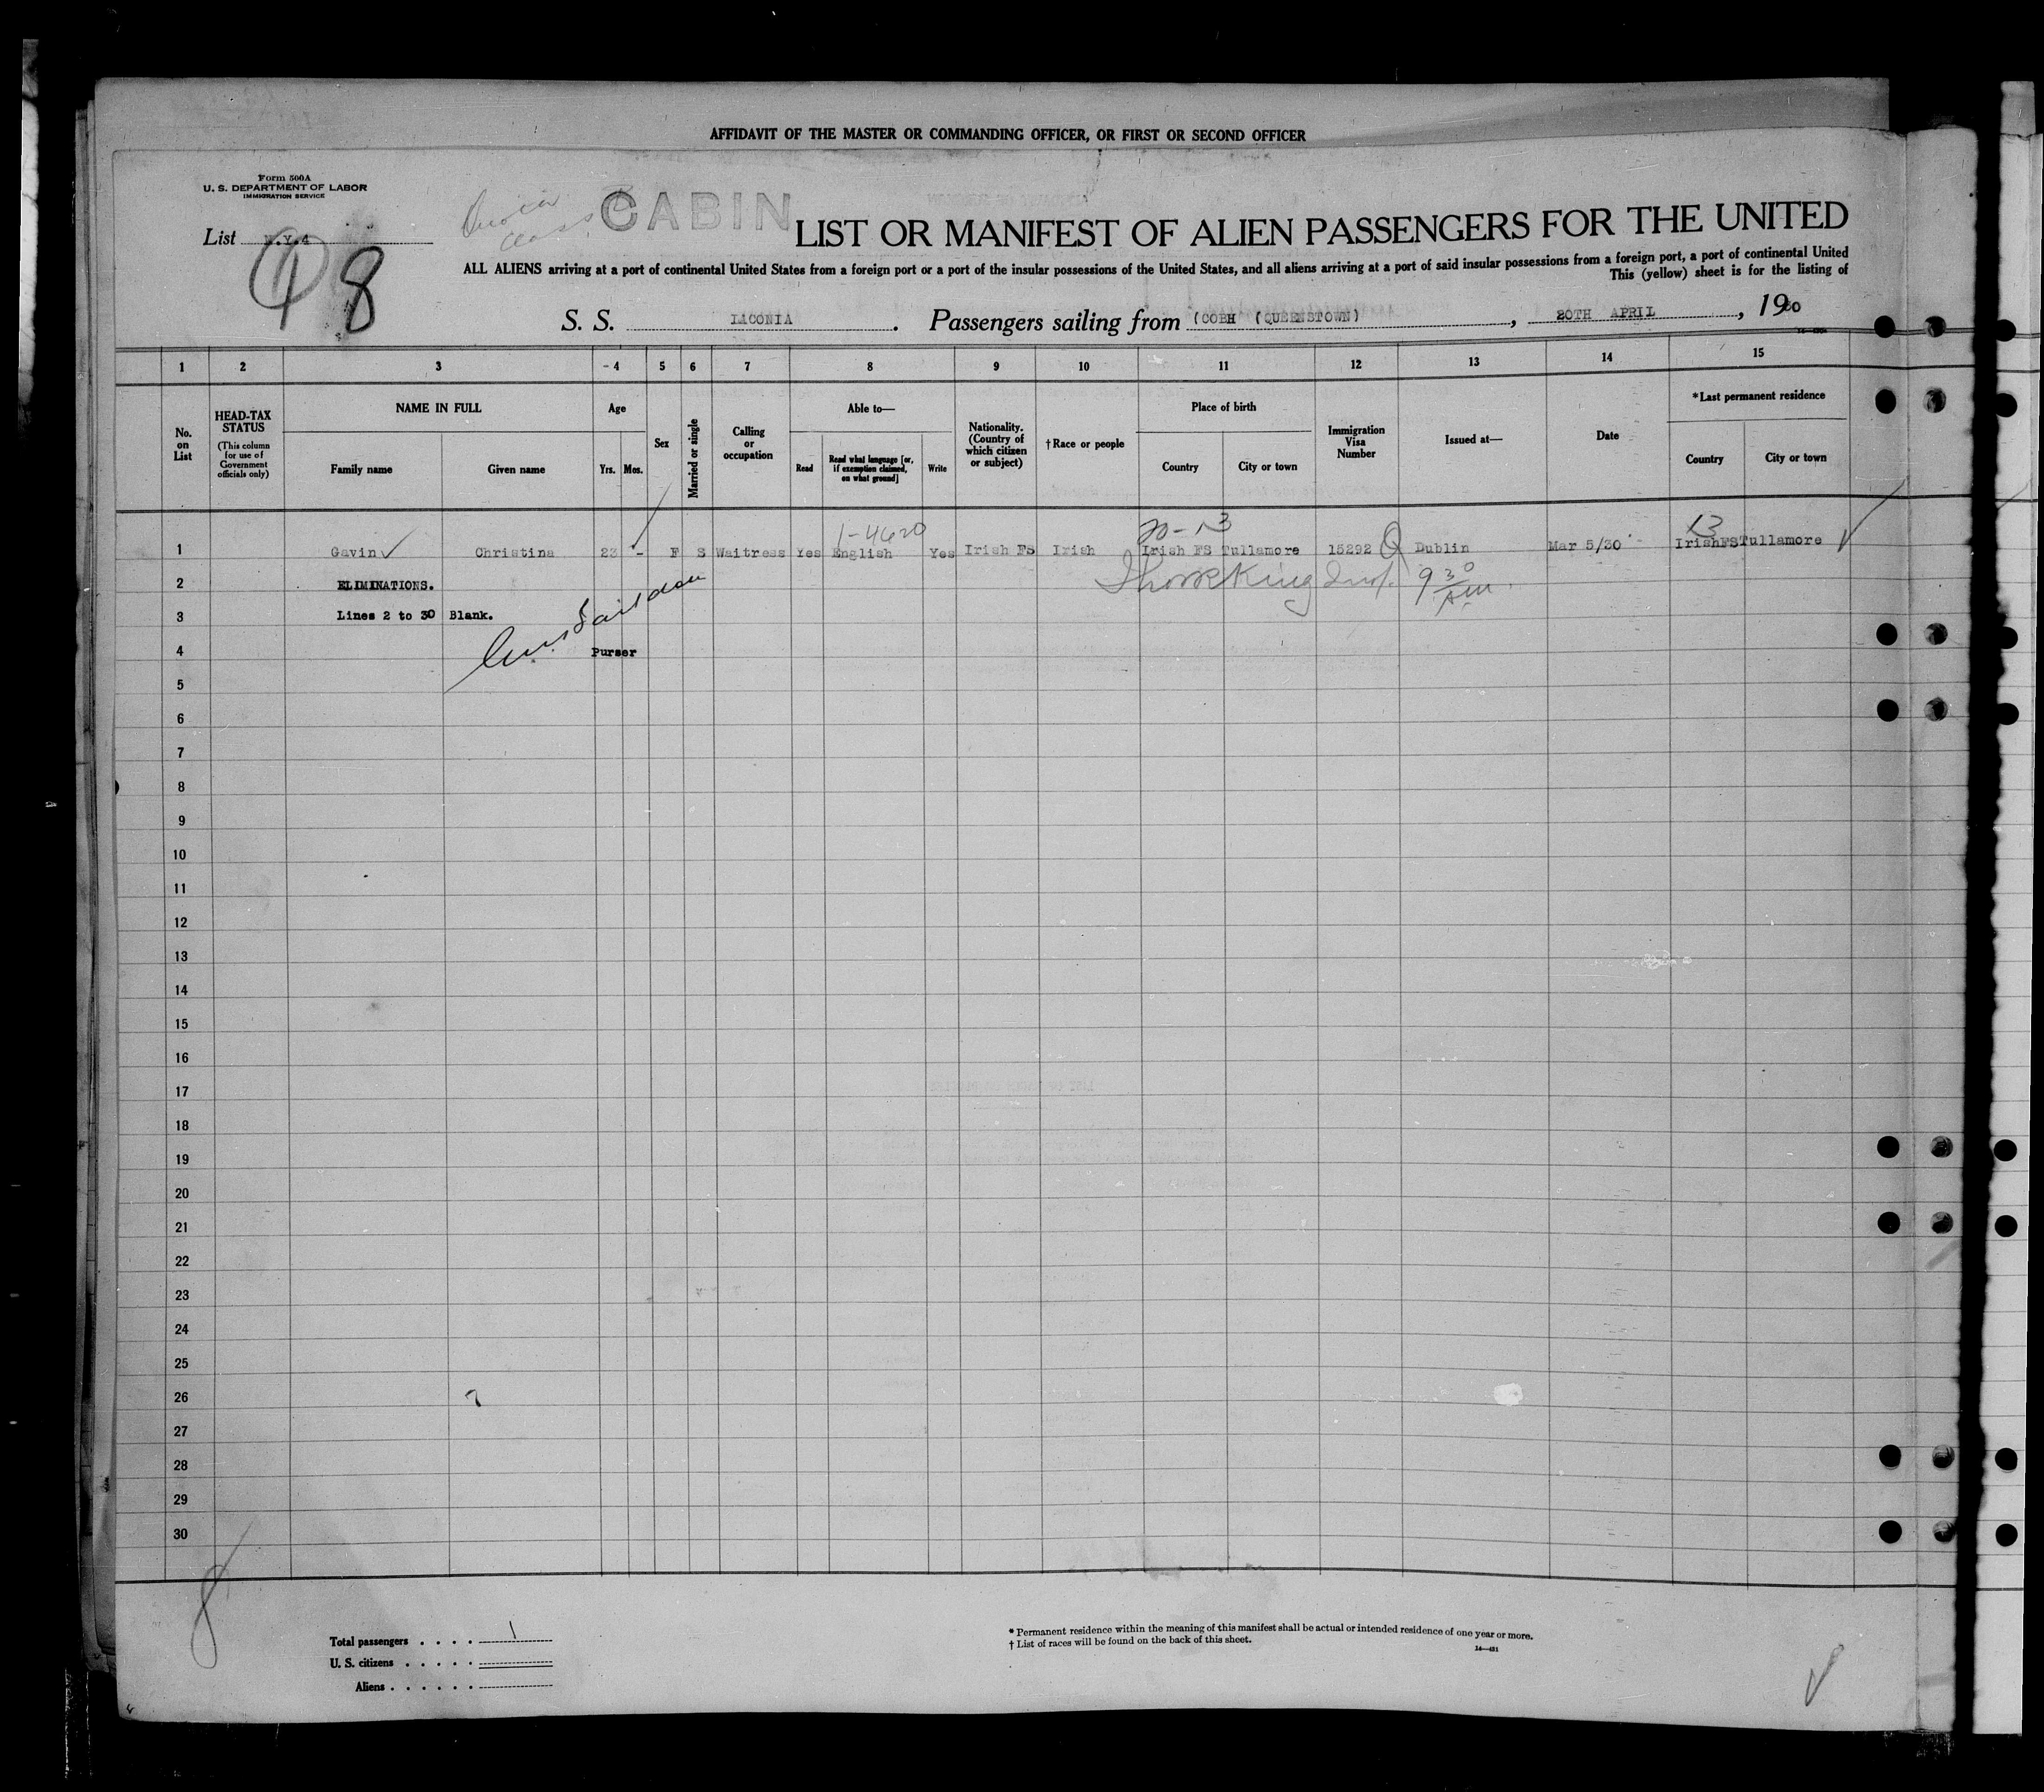 AFFIDAVIT OF THE MASTER OR COMMANDING OFFICER, OR FIRST OR SECOND OFFICER
Form 500A
U. S. DEPARTMENT OF LABOR
IMMIGRATION SERVICE
CABIN
LIST OR MANIFEST OF ALIEN PASSENGERS FOR THE UNITED
List N.Y.4
8
ALL ALIENS arriving at a port of continental United States from a foreign port or a port of the insular possessions of the United States, and all aliens arriving at a port of said insular possessions from a foreign port, a port of continental United
This (yellow) sheet is for the listing of
S. S. LACONIA . Passengers sailing from (COBH (QUEENSTOWN) , 20TH APRIL , 1930
1 2 3 4 5 6 7 8 9 10 11 12 13 14 15
No. on List
HEAD-TAX STATUS (This column for use of Government officials only)
NAME IN FULL
Family name
Given name
Age
Yrs. Mos.
Sex
Married or single
Calling or occupation
Able to—
Read
Read what language [or, if exemption claimed, on what ground]
Write
Nationality. (Country of which citizen or subject)
†Race or people
Place of birth
Country
City or town
Immigration Visa Number
Issued at—
Date
*Last permanent residence
Country
City or town
1-4620 20-13 13
1 Gavin Christina 23 - F S Waitress Yes English Yes Irish FS Irish Irish FS Tullamore 15292 Q Dublin Mar 5/30 IrishFS Tullamore
2 ELIMINATIONS. King Insp. 9 30 AM
3 Lines 2 to 30 Blank.
4 Purser
5
6
7
8
9
10
11
12
13
14
15
16
17
18
19
20
21
22
23
24
25
26
27
28
29
30
8
Total passengers . . . . 1
U. S. citizens . . . . .
Aliens . . . . . .
* Permanent residence within the meaning of this manifest shall be actual or intended residence of one year or more.
† List of races will be found on the back of this sheet.
14—421